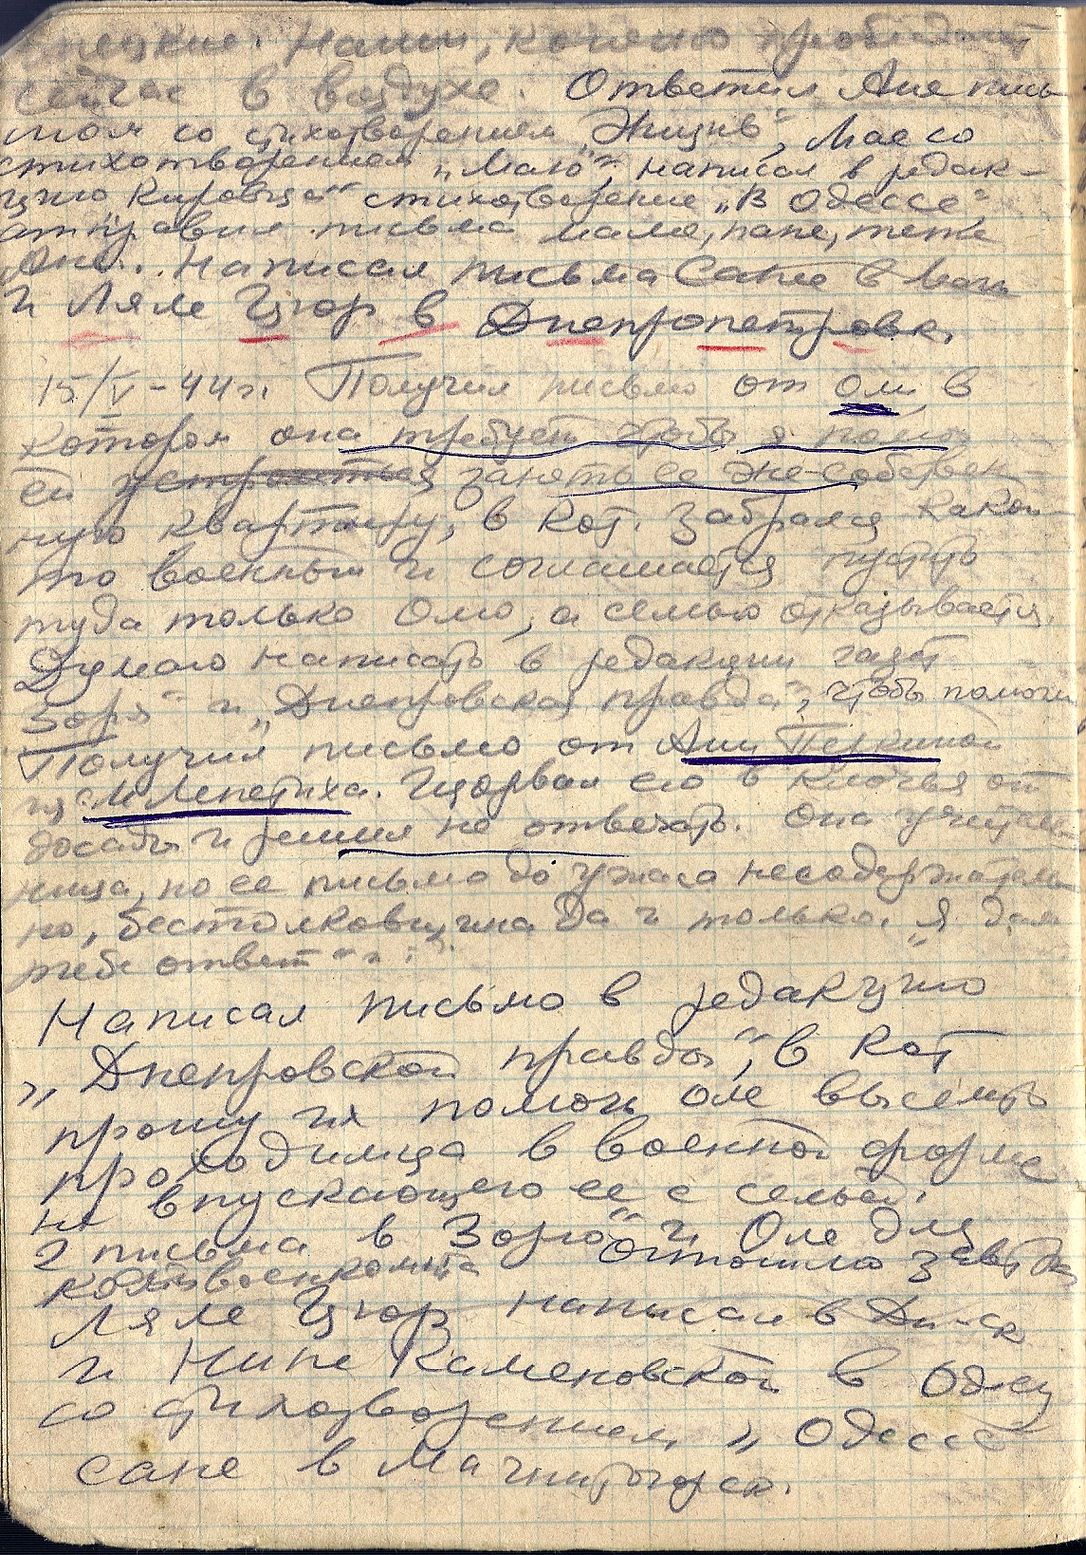 мецкие. Наши, конечно преобладают
сейчас в воздухе. Ответил Ане пись-
мом со стихотворением „Жизнь“, Мае со
стихотворением „Маю“, написал в редак-
цию Кировца“ стихотворение „В Одессе“,
отправил письма маме, папе, тете
Ане. Написал письма Сане в Магн
и Ляле Цюр в Днепропетровк.
15/V-44г. Получил письмо от Оли, в
котором она требует чтобы я помог
ей устроиться занять ее же собствен-
ную квартиру, в кот. забрался какой-
то военный и соглашается пустить
туда только Олю, а семью отказывается.
Думаю написать в редакции газет
Зоря“ и „Днепровская правда“, чтобы помогли
Получил письмо от Ани Перкиной
из М Лепетиха. Изорвал его в клочья от
досады и решил не отвечать. Она учитель-
ница, но ее письмо до ужаса несодержатель-
но, бестолковщина да и только. „Я дам
тебе ответ“ и :
Написал письмо в редакцию
„Днепровской правды“, в кот
прошу их помочь Оле выселить
проходимца в военной форме
не впускающего ее с семьей.
2 письма в Зорю“ и Оле для
райвоенкомата отошлю завтра
Ляле Цюр написал в Дн-ск
и Нине Каменовской в Одессу
со стихотворением „Одессе
Сане в Магнитогорск.